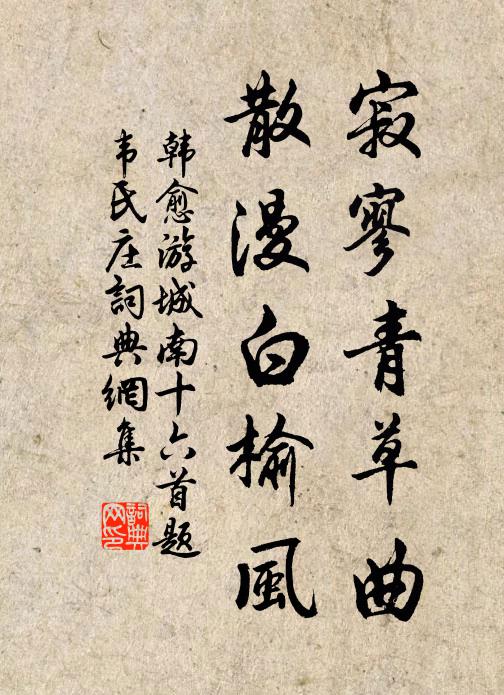 寂寥青草曲
散漫白榆風
韩愈游城南十六首题
韦氏庄詞典網集
詞典
网印